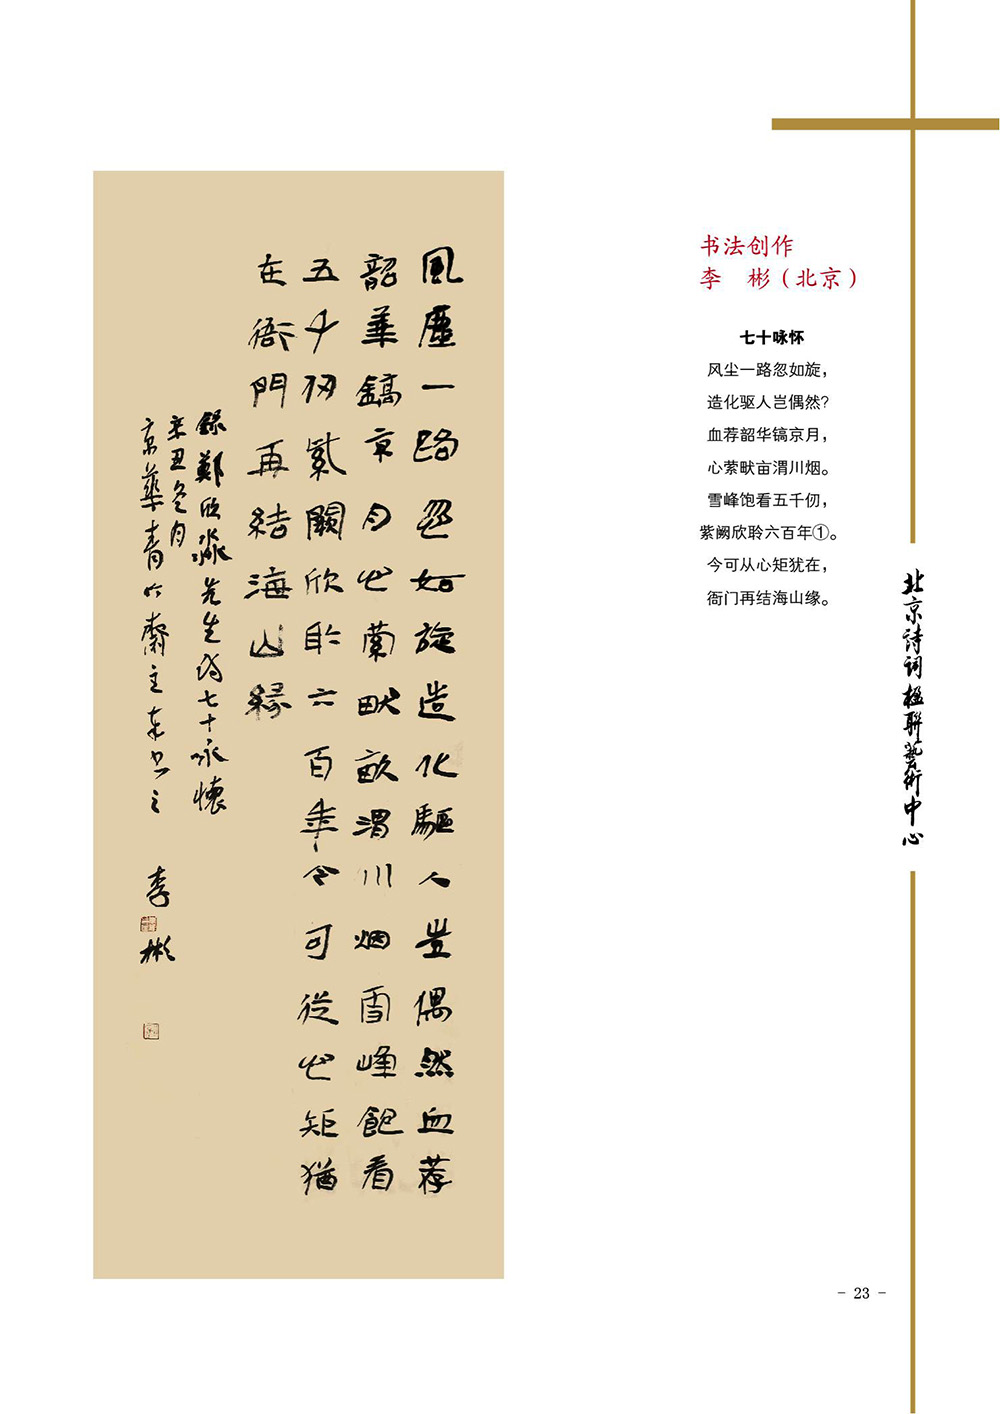 風塵一路忽如旋造化驅人豈偶然血荐
韶華鎬京月心畎畝渭川烟雪峰飽看
五千仞紫闕欣聆六百年今可從心矩猶
在衙門再結海山緣
錄鄭欣淼先生詩七十咏懷
辛丑冬月
京華青竹齋主書之
李彬
书法创作
李　彬（北京）
七十咏怀
风尘一路忽如旋，
造化驱人岂偶然？
血荐韶华镐京月，
心萦畎亩渭川烟。
雪峰饱看五千仞，
紫阙欣聆六百年①。
今可从心矩犹在，
衙门再结海山缘。
北京詩詞楹聯藝術中心
- 23 -